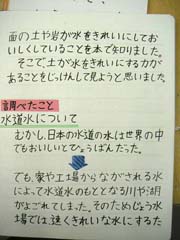 面の土や岩が水をきれいにしてお
いしくしていることを本で知りました。
そこで土が水をきれいにする力が
あることをじっけんして見ようと思いました。
調べたこと
水道水について
むかし、日本の水道の水は世界の中
でもおいしいとひょうばんだった。
でも、家や工場からながされる水
によって水道水のもととなる川や湖
がよごれてしまった。そのためじょう水
場では、速くきれいな水にするため